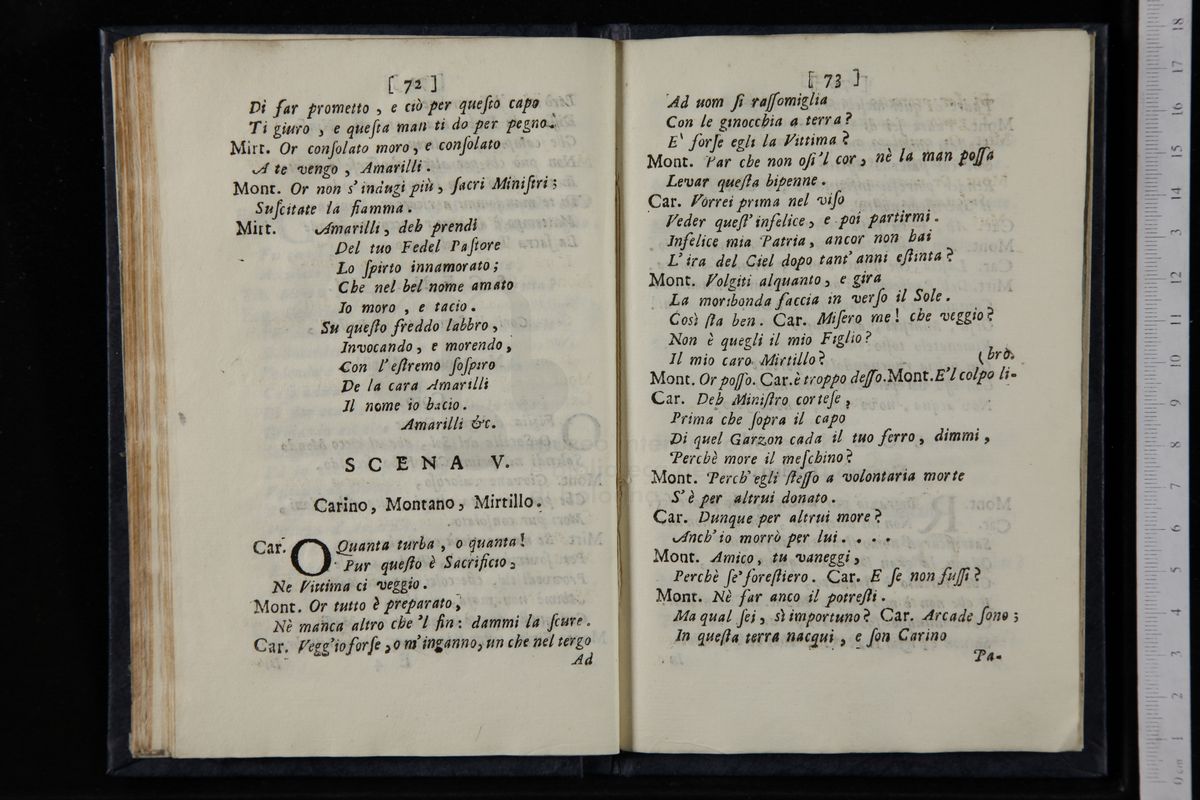 [ 72 ]
Di far prometto , e ciò per queſto capo
Ti giuro , e queſta man ti do per pegno.
Mirt. Or conſolato moro, e conſolato
A te vengo , Amarilli .
Mont. Or non s'indugi più , ſacri Miniſtri ;
Suſcitate la fiamma .
Mirt. Amarilli, deh prendi
Del tuo Fedel Paſtore
Lo ſpirto innamorato ;
Che nel bel nome amato
Io moro , e tacio .
Su queſto freddo labbro ,
Invocando , e morendo ,
Con l'eſtremo ſoſpiro
De la cara Amarilli
Il nome io bacio .
Amarilli &c.
SCENA V.
Carino, Montano, Mirtillo.
Car. OQuanta turba , o quanta !
Pur queſto è Sacrificio ,
Ne Vittima ci veggio .
Mont. Or tutto è preparato ,
Nè manca altro che 'l fin : dammi la ſcure .
Car. Vegg'io forſe , o m'inganno, un che nel tergo
Ad
[ 73 ]
Ad uom ſi raſſomiglia
Con le ginocchia a terra ?
E' forſe egli la Vittima ?
Mont. Par che non oſi 'l cor , nè la man poſſa
Levar queſta bipenne .
Car. Vorrei prima nel viſo
Veder queſt' infelice , e poi partirmi .
Infelice mia Patria , ancor non hai
L' ira del Ciel dopo tant' anni eſtinta ?
Mont. Volgiti alquanto , e gira
La moribonda faccia in verſo il Sole .
Così ſta ben . Car. Miſero me ! che veggio ?
Non è quegli il mio Figlio ?
Il mio caro Mirtillo ? (brò.
Mont. Or poſſo. Car. è troppo deſſo. Mont. E'l colpo li-
Car. Deh Miniſtro corteſe ,
Prima che ſopra il capo
Di quel Garzon cada il tuo ferro , dimmi ,
Perchè more il meſchino ?
Mont. Perch' egli ſteſſo a volontaria morte
S' è per altrui donato .
Car. Dunque per altrui more ?
Anch' io morrò per lui . . . .
Mont. Amico , tu vaneggi ,
Perchè ſe' foreſtiero . Car. E ſe non fuſſi ?
Mont. Nè far anco il potreſti .
Ma qual ſei , sì importuno ? Car. Arcade ſono ;
In queſta terra nacqui , e ſon Carino
Pa-